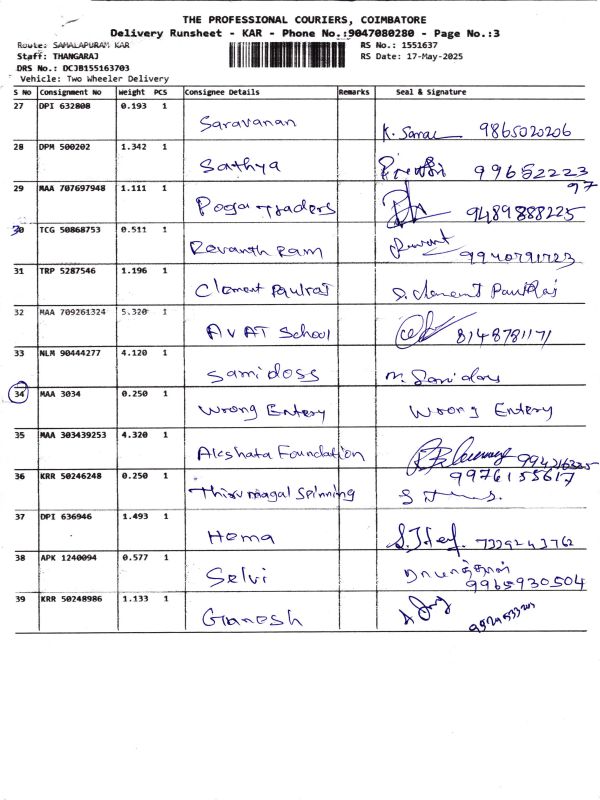 THE PROFESSIONAL COURIERS, COIMBATORE
Delivery Runsheet - KAR - Phone No.:9047080280 - Page No.:3
Route: SAMALAPURAM KAR RS No.: 1551637
Staff: THANGARAJ RS Date: 17-May-2025
DRS No.: DCJB155163703
Vehicle: Two Wheeler Delivery
S No Consignment No Weight PCS Consignee Details Remarks Seal & Signature
27 DPI 632808 0.193 1
Saravanan 9865020206
28 DPM 500202 1.342 1
Sathya 99652223
97
29 MAA 707697948 1.111 1
Pooja Traders 9489888225
30 TCG 50868753 0.511 1
Revanth Ram
31 TRP 5287546 1.196 1
Clement Paulraj S. Clement Paulraj
32 MAA 709261324 5.320 1
AVAT School 8148781171
33 NLM 90444277 4.120 1
Samidoss
34 MAA 3034 0.250 1
Wrong Entery Wrong Entery
35 MAA 303439253 4.320 1
Akshata Foundation
36 KRR 50246248 0.250 1 9976155617
Thirumagal Spinning
37 DPI 636946 1.493 1
Hema 7339243762
38 APK 1240094 0.577 1
Selvi
9965930504
39 KRR 50248986 1.133 1
Ganesh